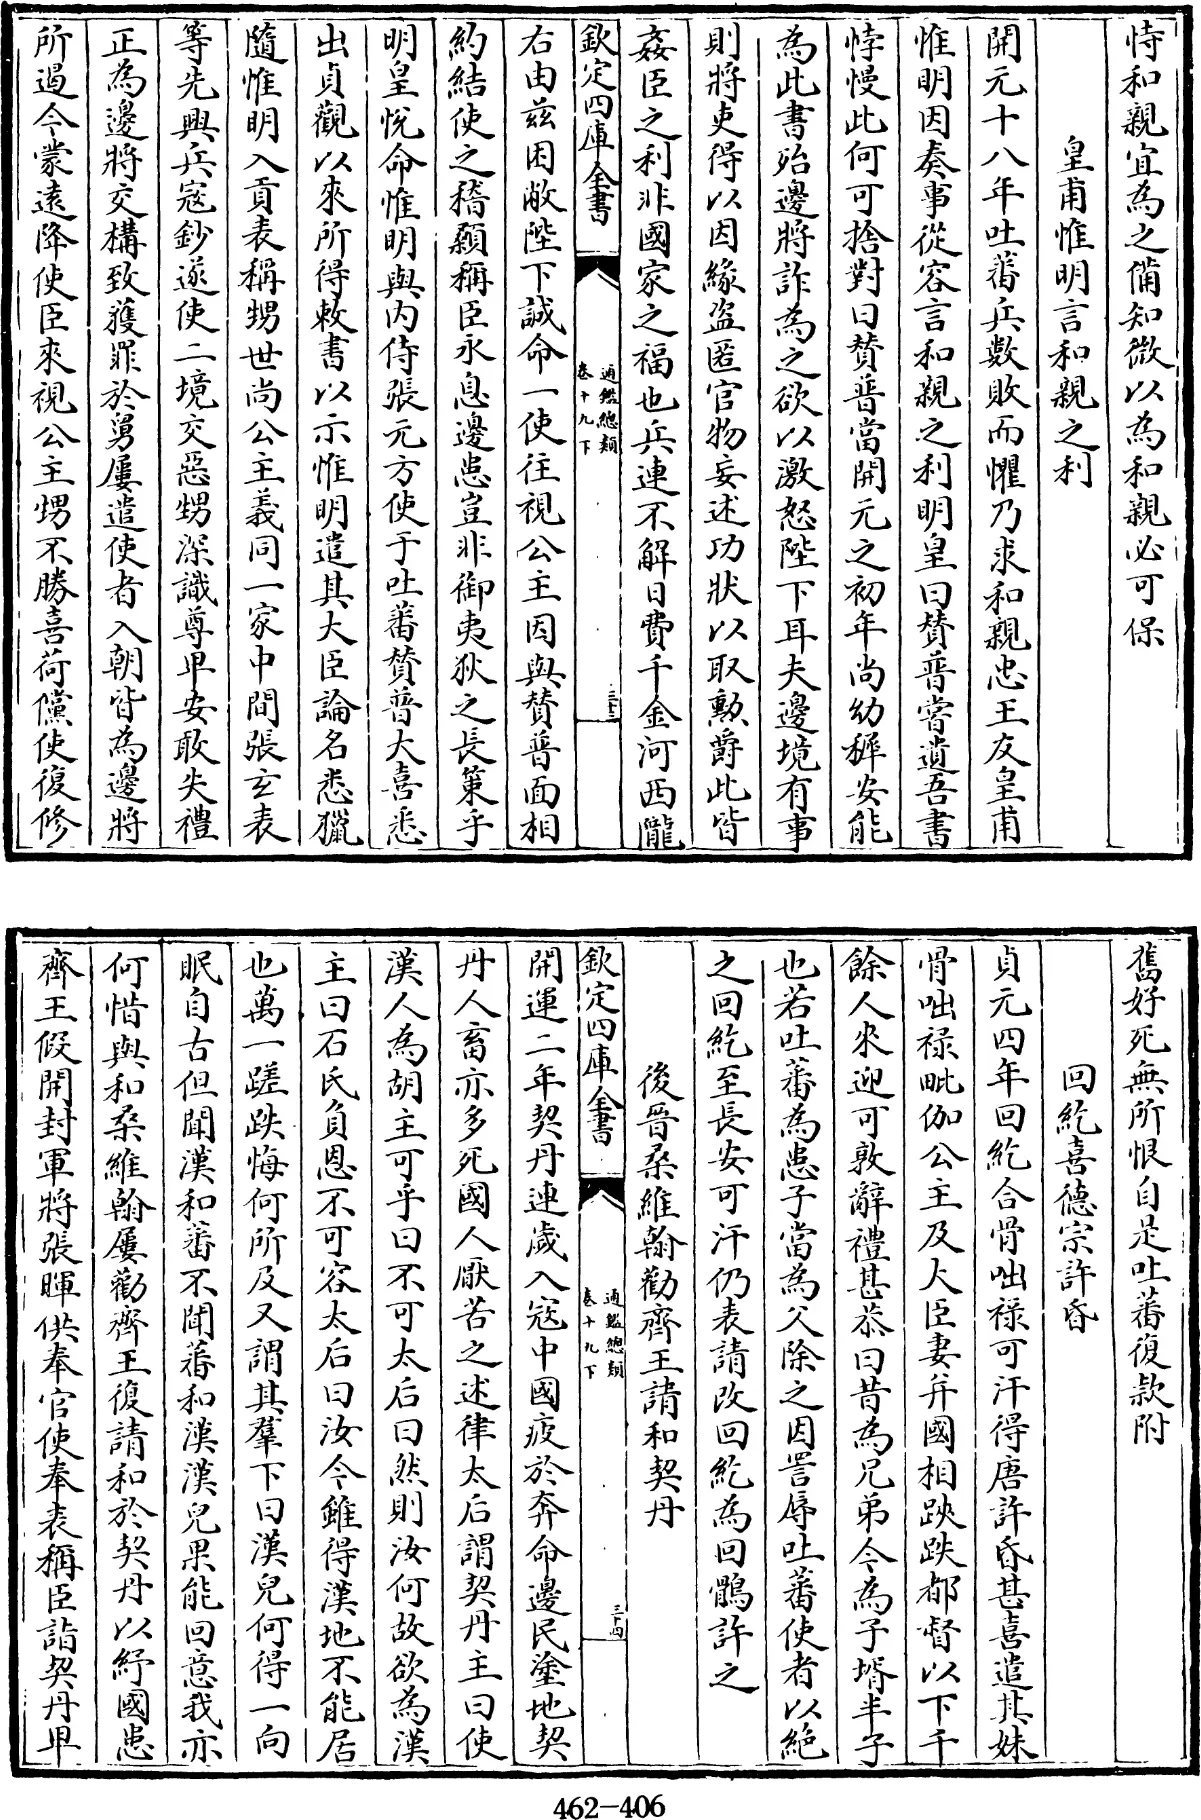 恃和親宜為之備知微以為和親必可保
皇甫惟明言和親之利
開元十八年吐蕃兵數敗而懼乃求和親忠王友皇甫
惟明因奏事從容言和親之利明皇曰贊普嘗遺吾書
悖慢此何可捨對曰贊普當開元之初年尚幼穉安能
為此書殆邊將詐為之欲以激怒陛下耳夫邊境有事
則將吏得以因緣盜匿官物妄述功狀以取勲爵此皆
姦臣之利非國家之福也兵連不解日費千金河西隴
欽定四庫全書
通鑑總類
卷十九下
三十三
右由兹困敝陛下誠命一使往視公主因與贊普面相
約結使之稽顙稱臣永息邊患豈非御夷狄之長策乎
明皇悅命惟明與内侍張元方使于吐蕃贊普大喜悉
出貞觀以來所得敕書以示惟明遣其大臣論名悉獵
隨惟明入貢表稱甥世尚公主義同一家中間張玄表
等先興兵寇鈔遂使二境交惡甥深識尊卑安敢失禮
正為邊將交構致獲罪於舅屢遣使者入朝皆為邊將
所遏今蒙遠降使臣來視公主甥不勝喜荷儻使復修
舊好死無所恨自是吐蕃復款附
回紇喜德宗許昏
貞元四年回紇合骨咄祿可汗得唐許昏甚喜遣其妹
骨咄禄毗伽公主及大臣妻并國相䟦跌都督以下千
餘人來迎可敦辭禮甚恭曰昔為兄弟今為子壻半子
也若吐蕃為患子當為父除之因詈辱吐蕃使者以絶
之回紇至長安可汗仍表請改回紇為回鶻許之
後晉桑維翰勸齊王請和契丹
欽定四庫全書
通鑑總類
卷十九下
三十四
開運二年契丹連歲入寇中國疲於奔命邊民塗地契
丹人畜亦多死國人厭苦之述律太后謂契丹主曰使
漢人為胡主可乎曰不可太后曰然則汝何故欲為漢
主曰石氏負恩不可容太后曰汝今雖得漢地不能居
也萬一蹉跌悔何所及又謂其羣下曰漢兒何得一向
眠自古但聞漢和蕃不聞蕃和漢漢兒果能回意我亦
何惜與和桑維翰屢勸齊王復請和於契丹以紓國患
齊王假開封軍將張暉供奉官使奉表稱臣詣契丹卑
462-406